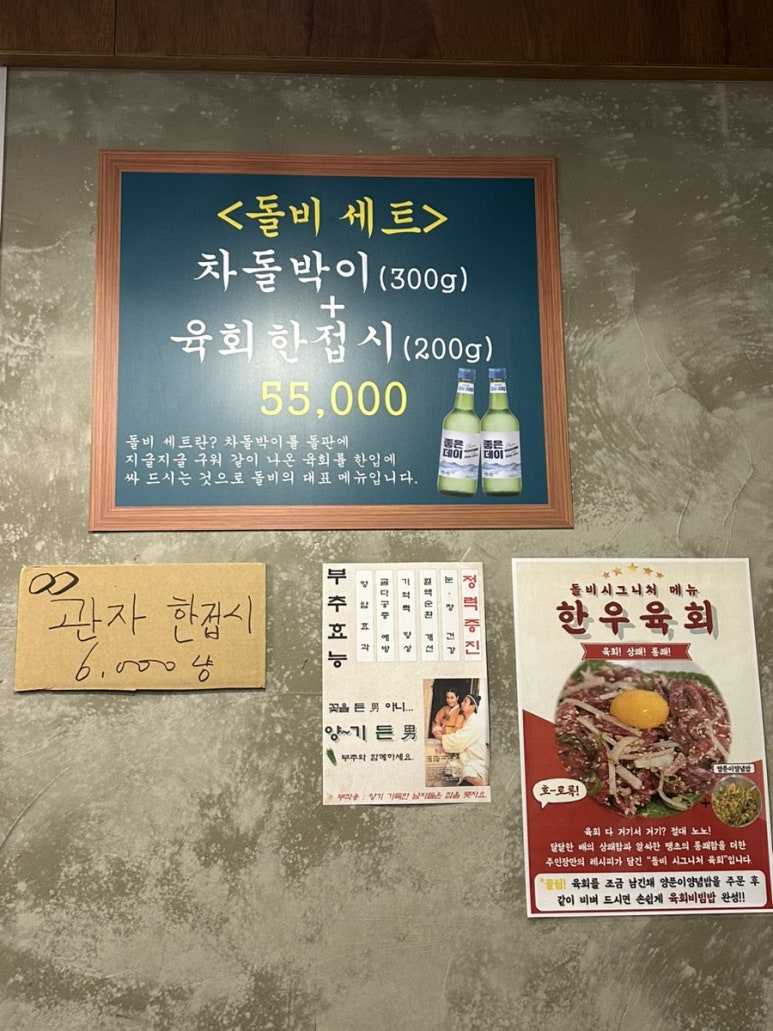 <돌비 세트>
차돌박이(300g)
+
육회한접시(200g)
55,000
좋은데이
좋은데이
돌비 세트란? 차돌박이를 돌판에
지글지글 구워 같이 나온 육회를 한입에
싸 드시는 것으로 돌비의 대표 메뉴입니다.
관자 한접시
6,000냥
부추효능
정력증진
눈·장 건강
혈액순환 개선
기억력 향상
골다공증 예방
항암효과
꽃을 든 男 아니...
양~기 든 男
부추와 함께하세요.
※ 부작용 : 양기 가득한 남자들은 잠을 못자요.
돌비시그니처 메뉴
한우육회
육회! 상쾌! 통쾌!
호~로록!
+
양푼이양념밥
육회 다 거기서 거기? 절대 노노!
달달한 배의 상쾌함과 알싸한 땡초의 통쾌함을 더한
주인장만의 레시피가 담긴 "돌비 시그니처 육회"입니다
*꿀팁! 육회를 조금 남긴채 양푼이양념밥을 주문 후
같이 비벼 드시면 손쉽게 육회비빔밥 완성!!